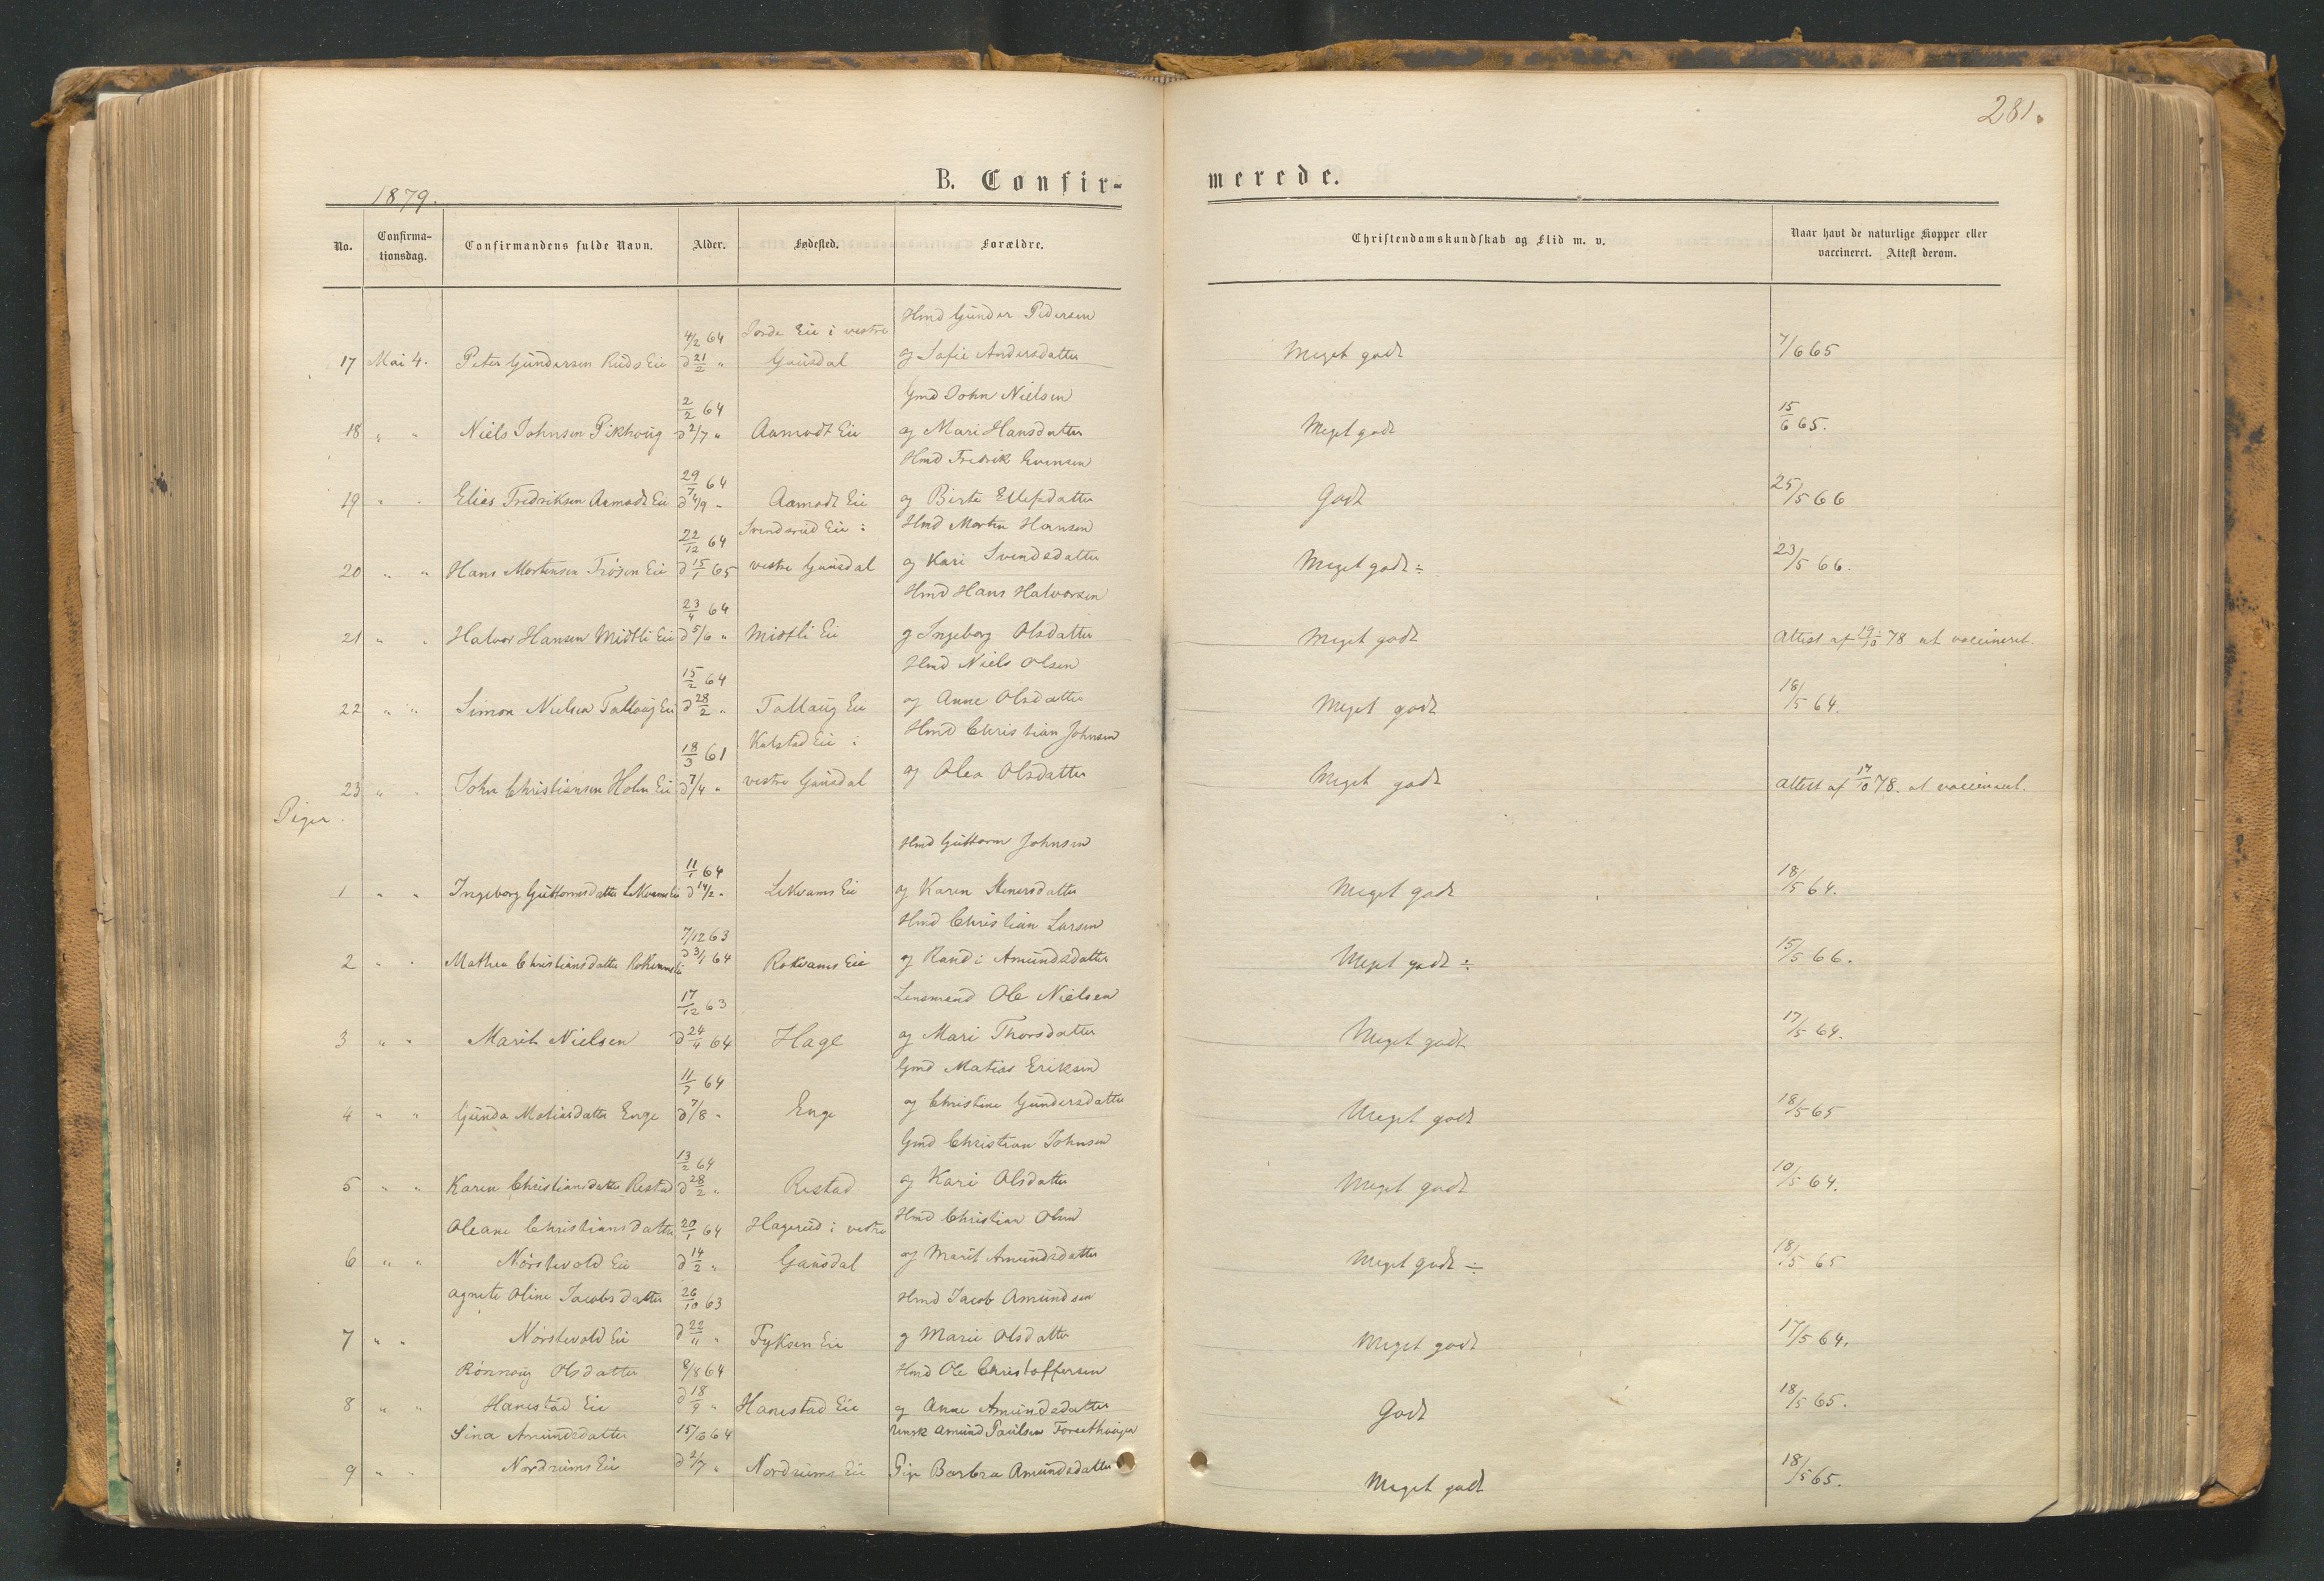 281.
B. Confir-
merede.
1879.
No.
Confirma-
tionsdag.
Confirmandens fulde Navn.
Alder.
Fødested.
Forældre.
Christendomskundskab og Flid m. v.
Naar havt de naturlige Kopper eller
vaccineret. Attest derom.
4/2 64 Jorde Eie i vestre Hmd Gunder Pedersen
17 Mai 4. Peter Gundersen Ruds Eie d 21/2 " Gausdal og Sofie Andersdatter Meget godt 7/6 65
2/2 64 Gmd John Nielsen
18 " " Niels Johnsen Pikhoug d 2/7 " Aamodt Eie og Mari Hansdatter Meget godt 15/6 65.
29/7 64 Hmd Fredrik Evensen
19 " " Elias Fredriksen Aamodt Eie d 4/9 " Aamodt Eie og Birte Ellefsdatter Godt 25/5 66
22/12 64 Svendsrud Eie i Hmd Morten Hansen
20 " " Hans Mortensen Frøsen Eie d 15/1 65 vestre Gausdal og Kari Svendsdatter Meget godt ÷ 23/5 66.
23/4 64 Hmd Hans Halvorsen
21 " " Halvor Hansen Midtli Eie d 5/6 " Midtli Eie og Ingeborg Olsdatter Meget godt Attest af 19/10 78 at vaccineret.
15/2 64 Hmd Niels Olsen
22 " " Simon Nielsen Tallaug Eie d 28/2 " Tallaug Eie og Anne Olsdatter Meget godt 18/5 64.
18/3 61 Kalstad Eie i Hmd Christian Johnsen
23 " " John Christiansen Holm Eie d 7/4 " vestre Gausdal og Olea Olsdatter Meget godt Attest af 17/10 78. at vaccineret.
Piger.
11/1 64 Hmd Guttorm Johnsen
1 " " Ingeborg Guttormsdatter Lekvams Eie d 14/2 " Lekvams Eie og Karen Stenersdatter Meget godt 18/5 64.
7/12 63 Hmd Christian Larsen
2 " " Mathea Christiansdatter Rokvams Eie d 3/1 64 Rokvams Eie og Randi Amundsdatter Meget godt ÷ 15/5 66.
17/12 63 Lensmand Ole Nielsen
3 " " Marit Nielsen d 24/4 64 Hage og Mari Thorsdatter Meget godt 17/5 64.
11/7 64 Gmd Matias Eriksen
4 " " Gunda Matiasdatter Enge d 7/8 " Enge og Christine Gundersdatter Meget godt 18/5 65
13/2 64 Gmd Christian Johnsen
5 " " Karen Christiansdatter Restad d 28/2 " Restad og Kari Olsdatter Meget godt 10/5 64.
Oleane Christiansdatter 20/1 64 Hagerud i vestre Hmd Christian Olsen
6 " " Nørstevold Eie d 14/2 " Gausdal og Marit Amundsdatter Meget godt ÷ 18/5 65
Agnete Oline Jacobsdatter 26/10 63 Hmd Jacob Amundsen
7 " " Nørstevold Eie d 22/11 " Fyksen Eie og Marie Olsdatter Meget godt 17/5 64.
Rønnaug Olsdatter 8/8 64 Hmd Ole Christoffersen
8 " " Hanestad Eie d 18/9 " Hanestad Eie og Anne Amundsdatter Godt 18/5 65.
Sina Amundsdatter 15/6 64 Amund Paulsen
9 " " Nordrums Eie d 2/7 " Nordrums Eie Pige Barbra Amundsdatter Meget godt 18/5 65.